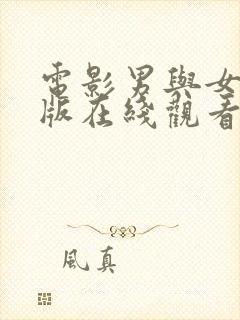 電影男與女
版在綫觀看
風真